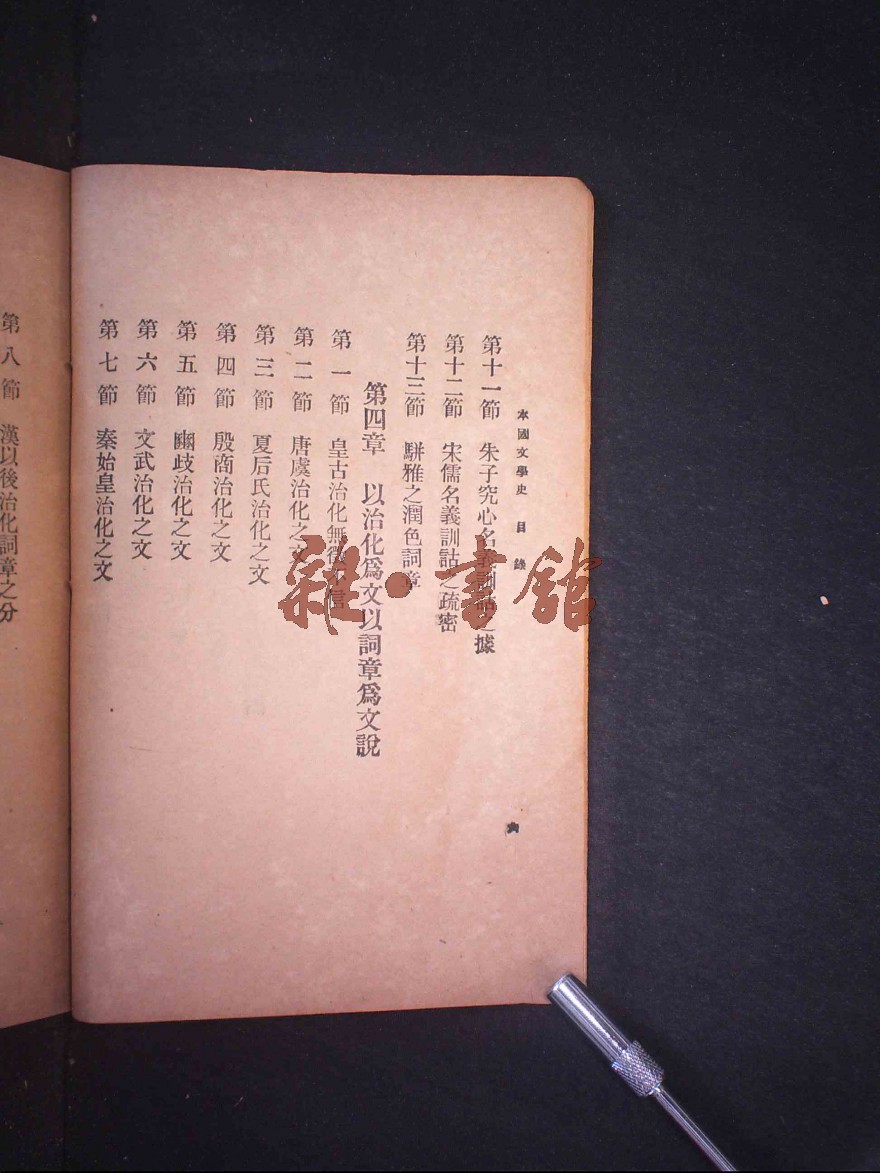 本國文學史 目錄
六
第十一節 朱子究心名義訓詁之據
第十二節 宋儒名義訓詁之疏密
第十三節 駢雅之潤色詞章
第四章 以治化爲文以詞章爲文說
第一節 皇古治化無徵不信
第二節 唐虞治化之文
第三節 夏后氏治化之文
第四節 殷商治化之文
第五節 豳歧治化之文
第六節 文武治化之文
第七節 秦始皇治化之文
第八節 漢以後治化詞章之分
雜·書館